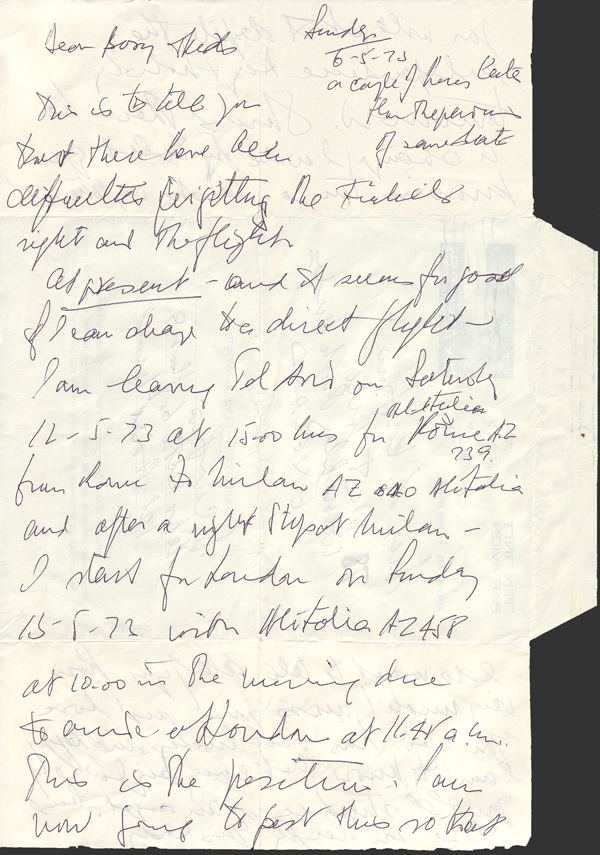 Sunday
6-5-73
a couple of hours later
than the previous
of same date
Dear Boory & Kids
This is to tell you
that there have been
difficulties for getting the tickets
right and the flight
At present - and it seems for good
if I can change to a direct flight -
I am leaving Tel Aviv on Saturday
12-5-73 at 15.00 hrs for Rome AZ
Alitalia
739.
from Rome to Milan AZ Alitalia
and after a night stop at Milan -
I start for London on Sunday
13-5-73 with Alitalia AZ 458
at 10.00 in the morning due
to arrive at London at 11.45 a.m.
This is the position. I am
now going to post this so that